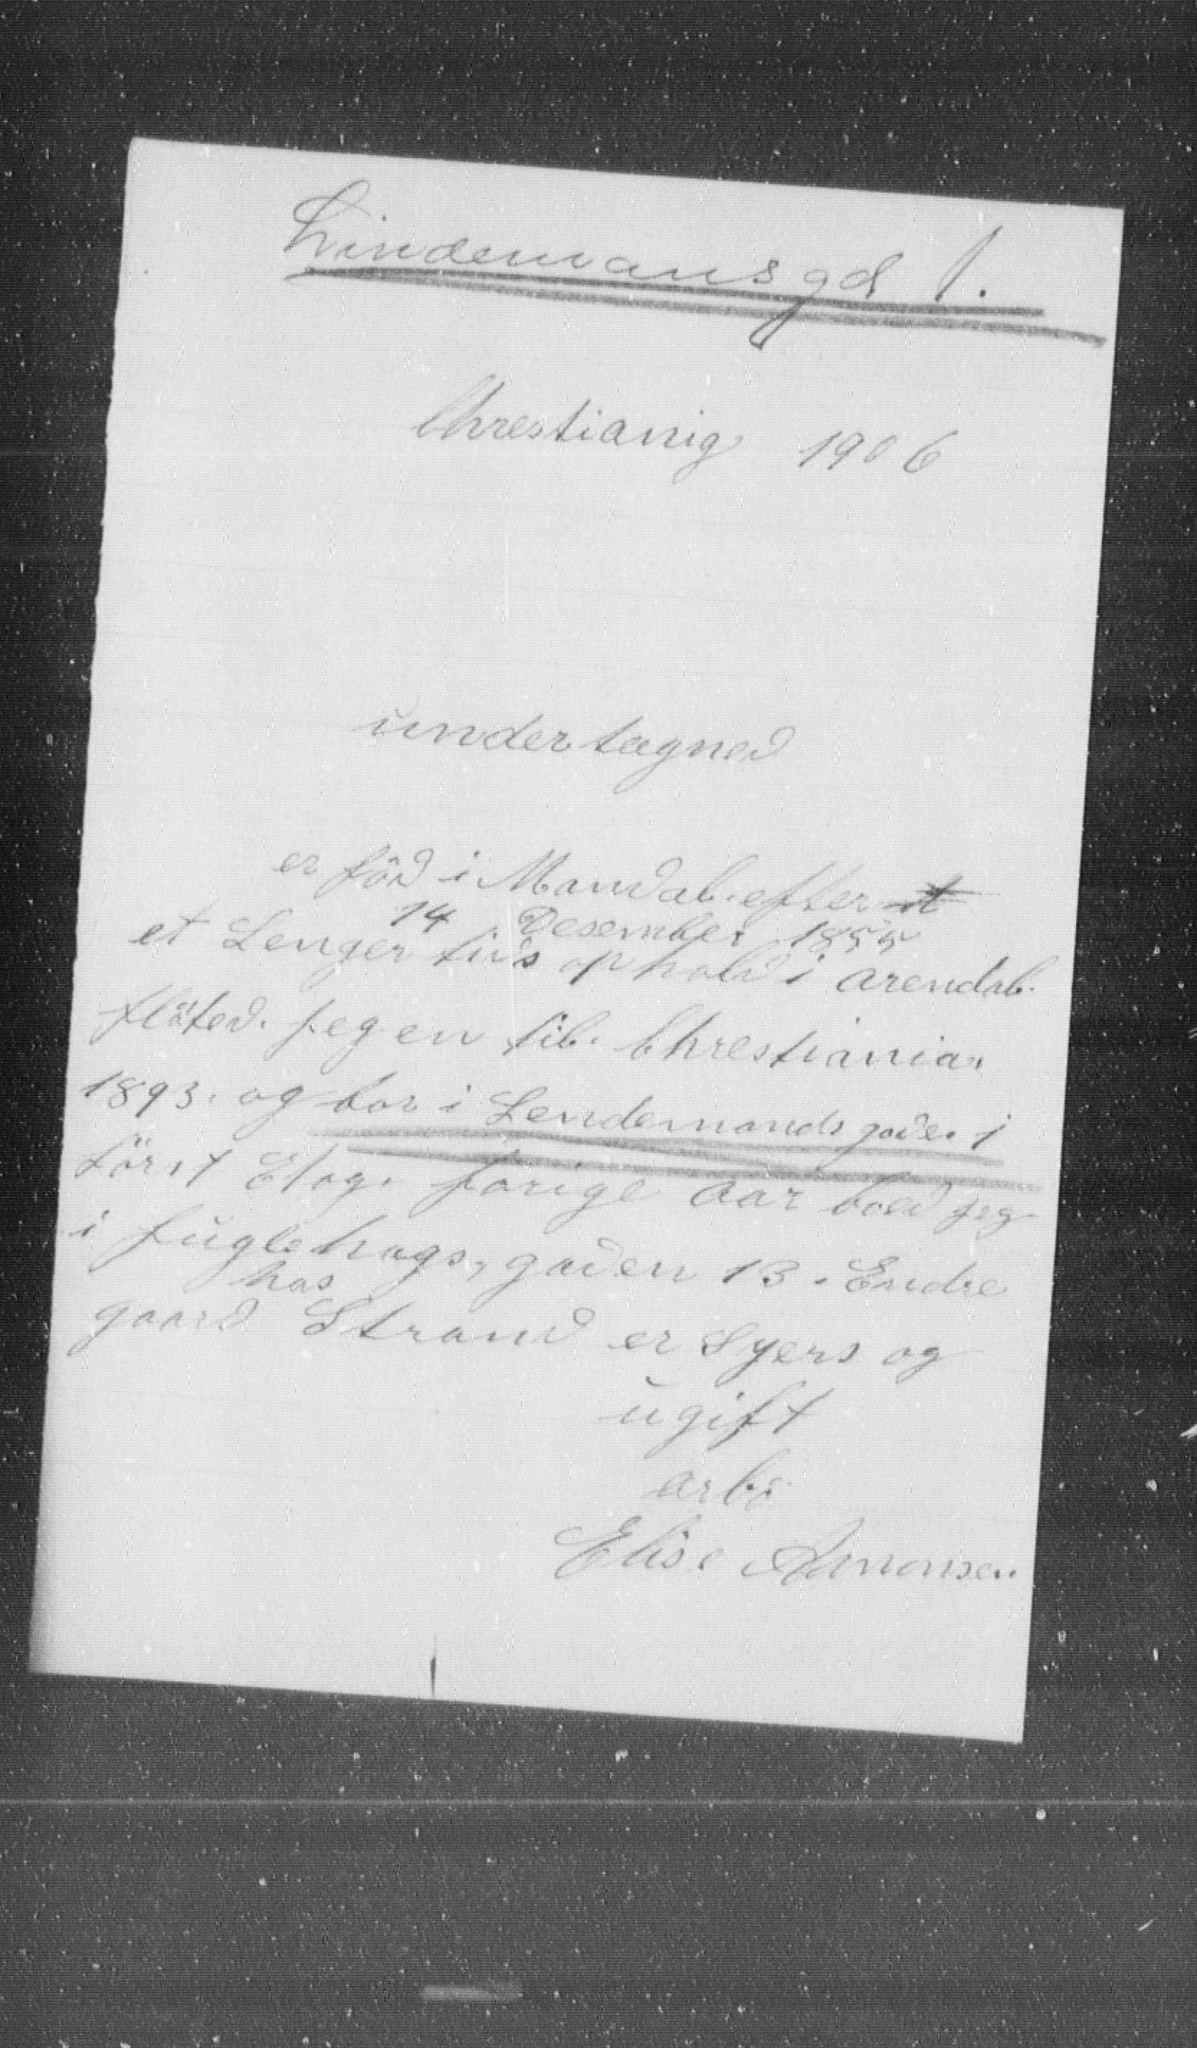 Lindemansgd 1.
Chrestianig 1906
undertegned
er föd i Mandal. efter et
14 Desember 1855
et Lenger tids ophold i arendal.
flöted. jeg en til. Chrestiania.
1893. og bor i Lendemands gade. 1
först Etag. forige aar boed jeg
i fuglehags, gaden 13. Endre
has
gaard Strand er Syers og
ugift
arbö
Elise Amonsen.